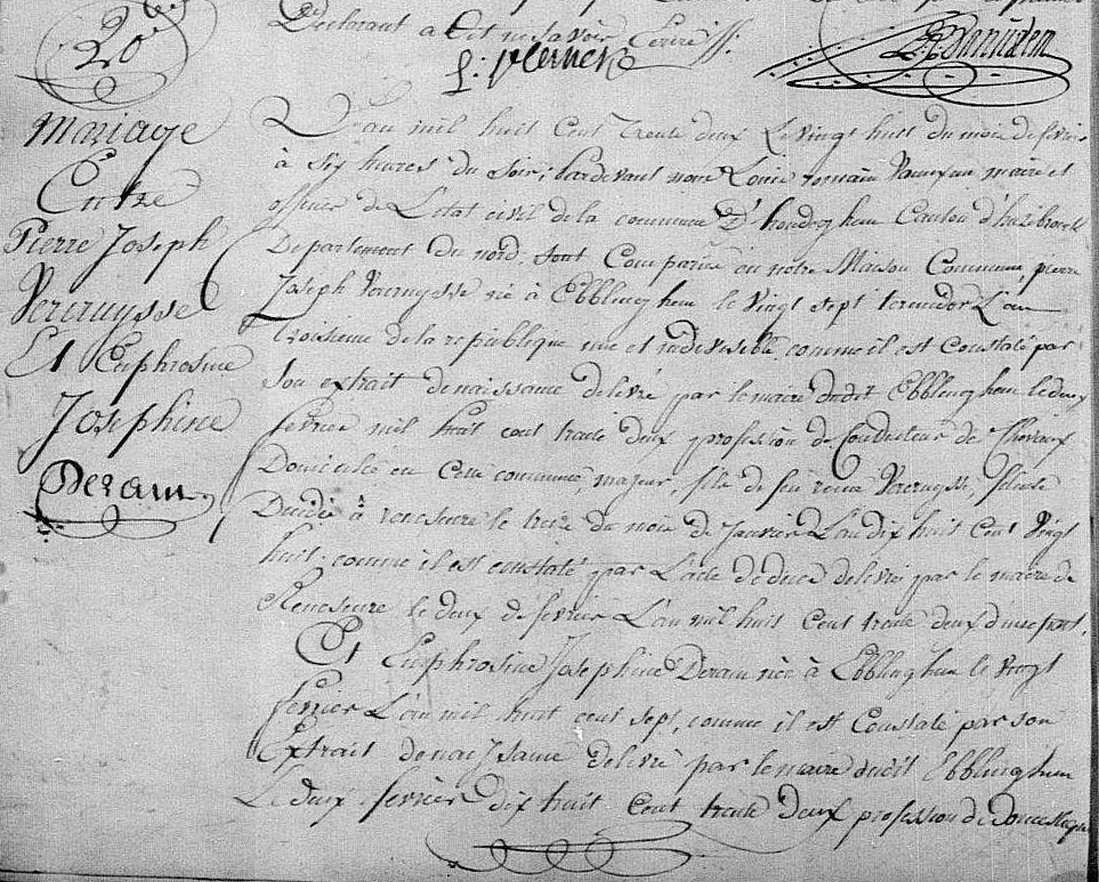 Declarant a Dit ne savoir Ecrire ff.
20e
Mariage
Entre
Pierre Joseph
Vercruysse
Et Euphrosine
Josephine
Deram
L'an mil huit Cent trente deux Le vingt huit du mois de fevrier
à six heures du Soir; Pardevant nous Louis romain maire et
officier de L'etat civil de la commune D'hondeghem Canton d'hazebrouck
Departement du nord; Sont Comparus en notre Maison Commune, pierre
Joseph Vercruysse né à Ebblinghem le Vingt sept termidor L'an
troisieme de la republique une et indivisible, comme il est Constaté par
son extrait de naissance delivré par le maire dudit Ebblinghem le deux
fevrier mil huit cent trente deux profession de Conducteur de Chevaux
Domicilié en Cette commune, majeur, fils de feu Vercruysse,
Decidé à renescure le treize du mois de Janvier L'an dix huit Cent Vingt
huit; comme il est constaté par L'acte de decé delivré par le maire de
Renescure le deux de fevrier L'an mil huit Cent trente deux d'une part,
Et Euphrosine Josephine Deram née à Ebblinghem le vingt
fevrier L'an mil huit cent sept, comme il est Constaté par son
Extrait de naissance delivré par le maire dudit Ebblinghem
Le deux fevrier dix huit Cent trente Deux profession de Domestique